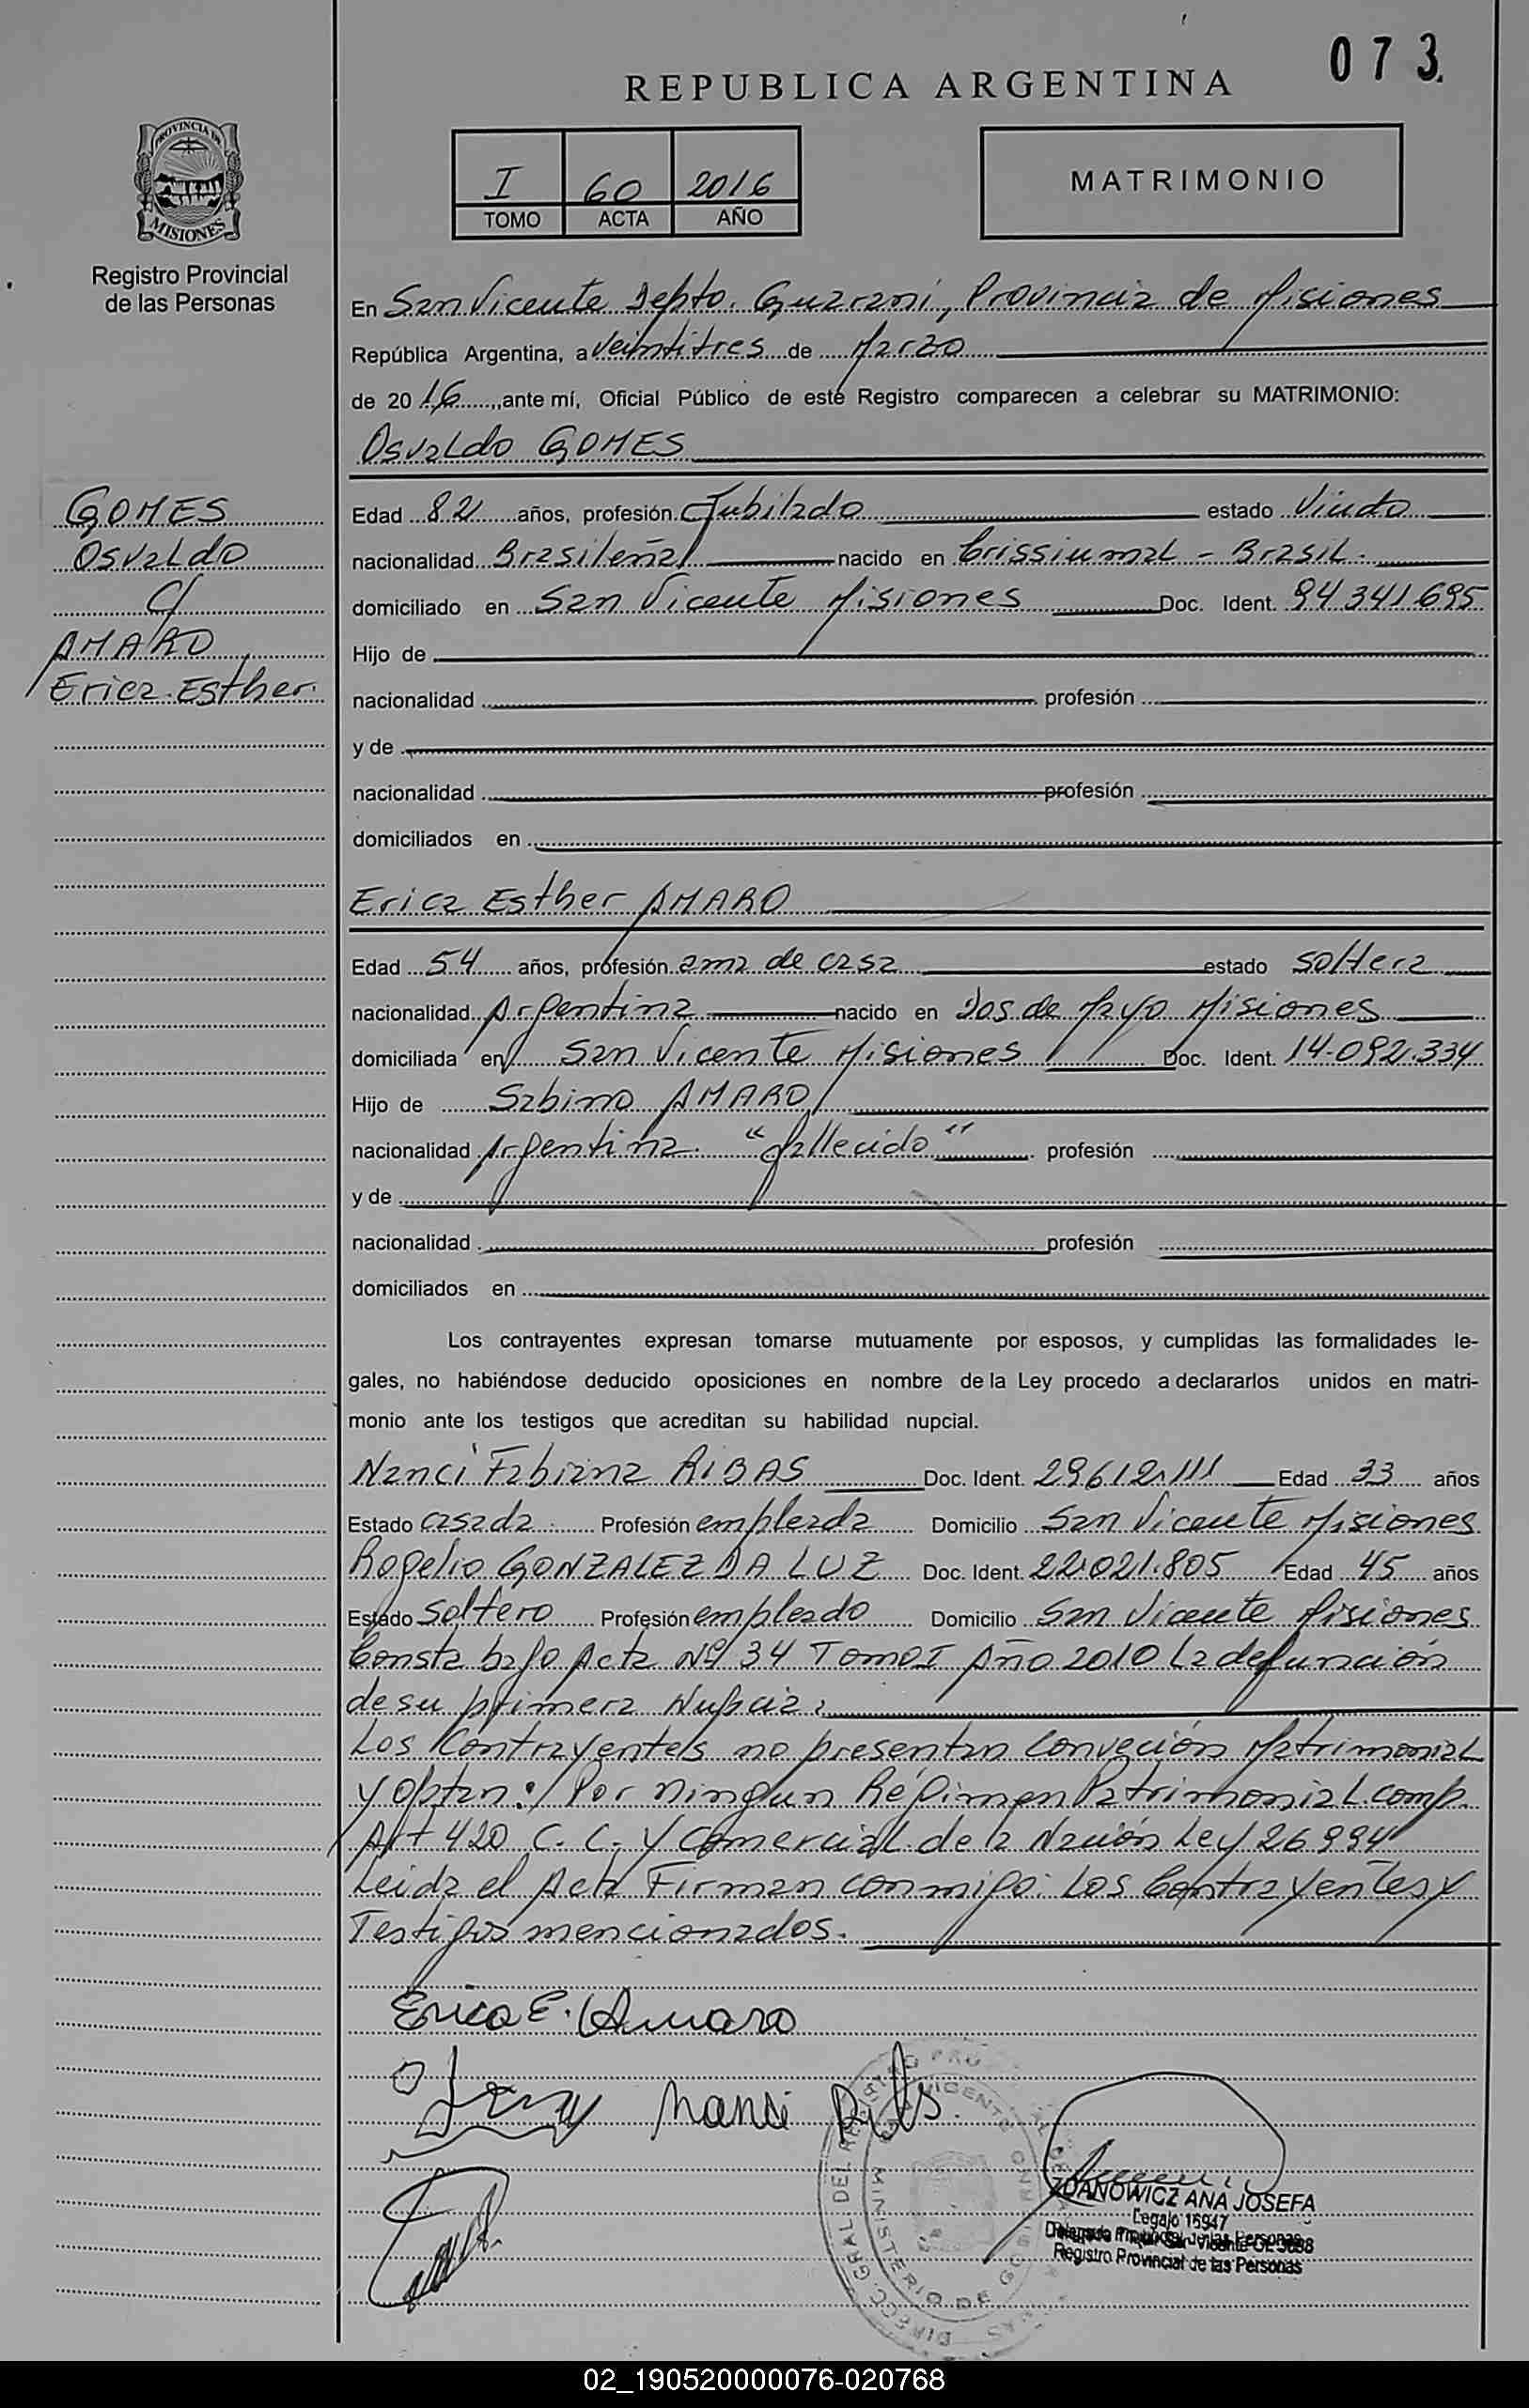 073
REPUBLICA ARGENTINA
I 60 2016
TOMO ACTA AÑO
MATRIMONIO
PROVINCIA DE
MISIONES
Registro Provincial
de las Personas
En San Vicente Depto. Guarani, Provincia de Misiones
República Argentina, a Veintitres de Marzo
de 2016, ante mí, Oficial Público de este Registro comparecen a celebrar su MATRIMONIO:
Osvaldo GOMES
GOMES
Osvaldo
C/
AMARO
Erica Esther.
Edad 82 años, profesión Jubilado estado Viudo
nacionalidad Brasileña nacido en Crissiumal - Brasil.
domiciliado en San Vicente Misiones Doc. Ident. 94341695
Hijo de
nacionalidad profesión
y de
nacionalidad profesión
domiciliados en
Erica Esther AMARO
Edad 54 años, profesión ama de casa estado soltera
nacionalidad Argentina nacido en Dos de Mayo Misiones
domiciliada en San Vicente Misiones Doc. Ident. 14.092.334
Hijo de Sabino AMARO
nacionalidad Argentina. "fallecido" profesión
y de
nacionalidad profesión
domiciliados en
Los contrayentes expresan tomarse mutuamente por esposos, y cumplidas las formalidades le-
gales, no habiéndose deducido oposiciones en nombre de la Ley procedo a declararlos unidos en matri-
monio ante los testigos que acreditan su habilidad nupcial.
Nanci Fabiana RIBAS Doc. Ident. 29.612.111 Edad 33 años
Estado casada Profesión empleada Domicilio San Vicente Misiones
Rogelio GONZALEZ DA LUZ Doc. Ident. 22.021.805 Edad 45 años
Estado Soltero Profesión empleado Domicilio San Vicente Misiones
Consta bajo Acta Nº 34 Tomo I Año 2010 La defunción
de su primera Nupcia;
Los Contrayentes no presentan Conveción Matrimonial
y optan: Por ningun Régimen Patrimonial. comp.
Art 420 C. C. y Comercial de la Nación Ley 26994
Leida el Acta Firman conmigo: Los Contrayentes y
Testigos mencionados.
Erica E. Amaro
Nanci Ribs.
ZDANOWICZ ANA JOSEFA
Legajo 15947
Registro Provincial de las Personas
02_190520000076-020768